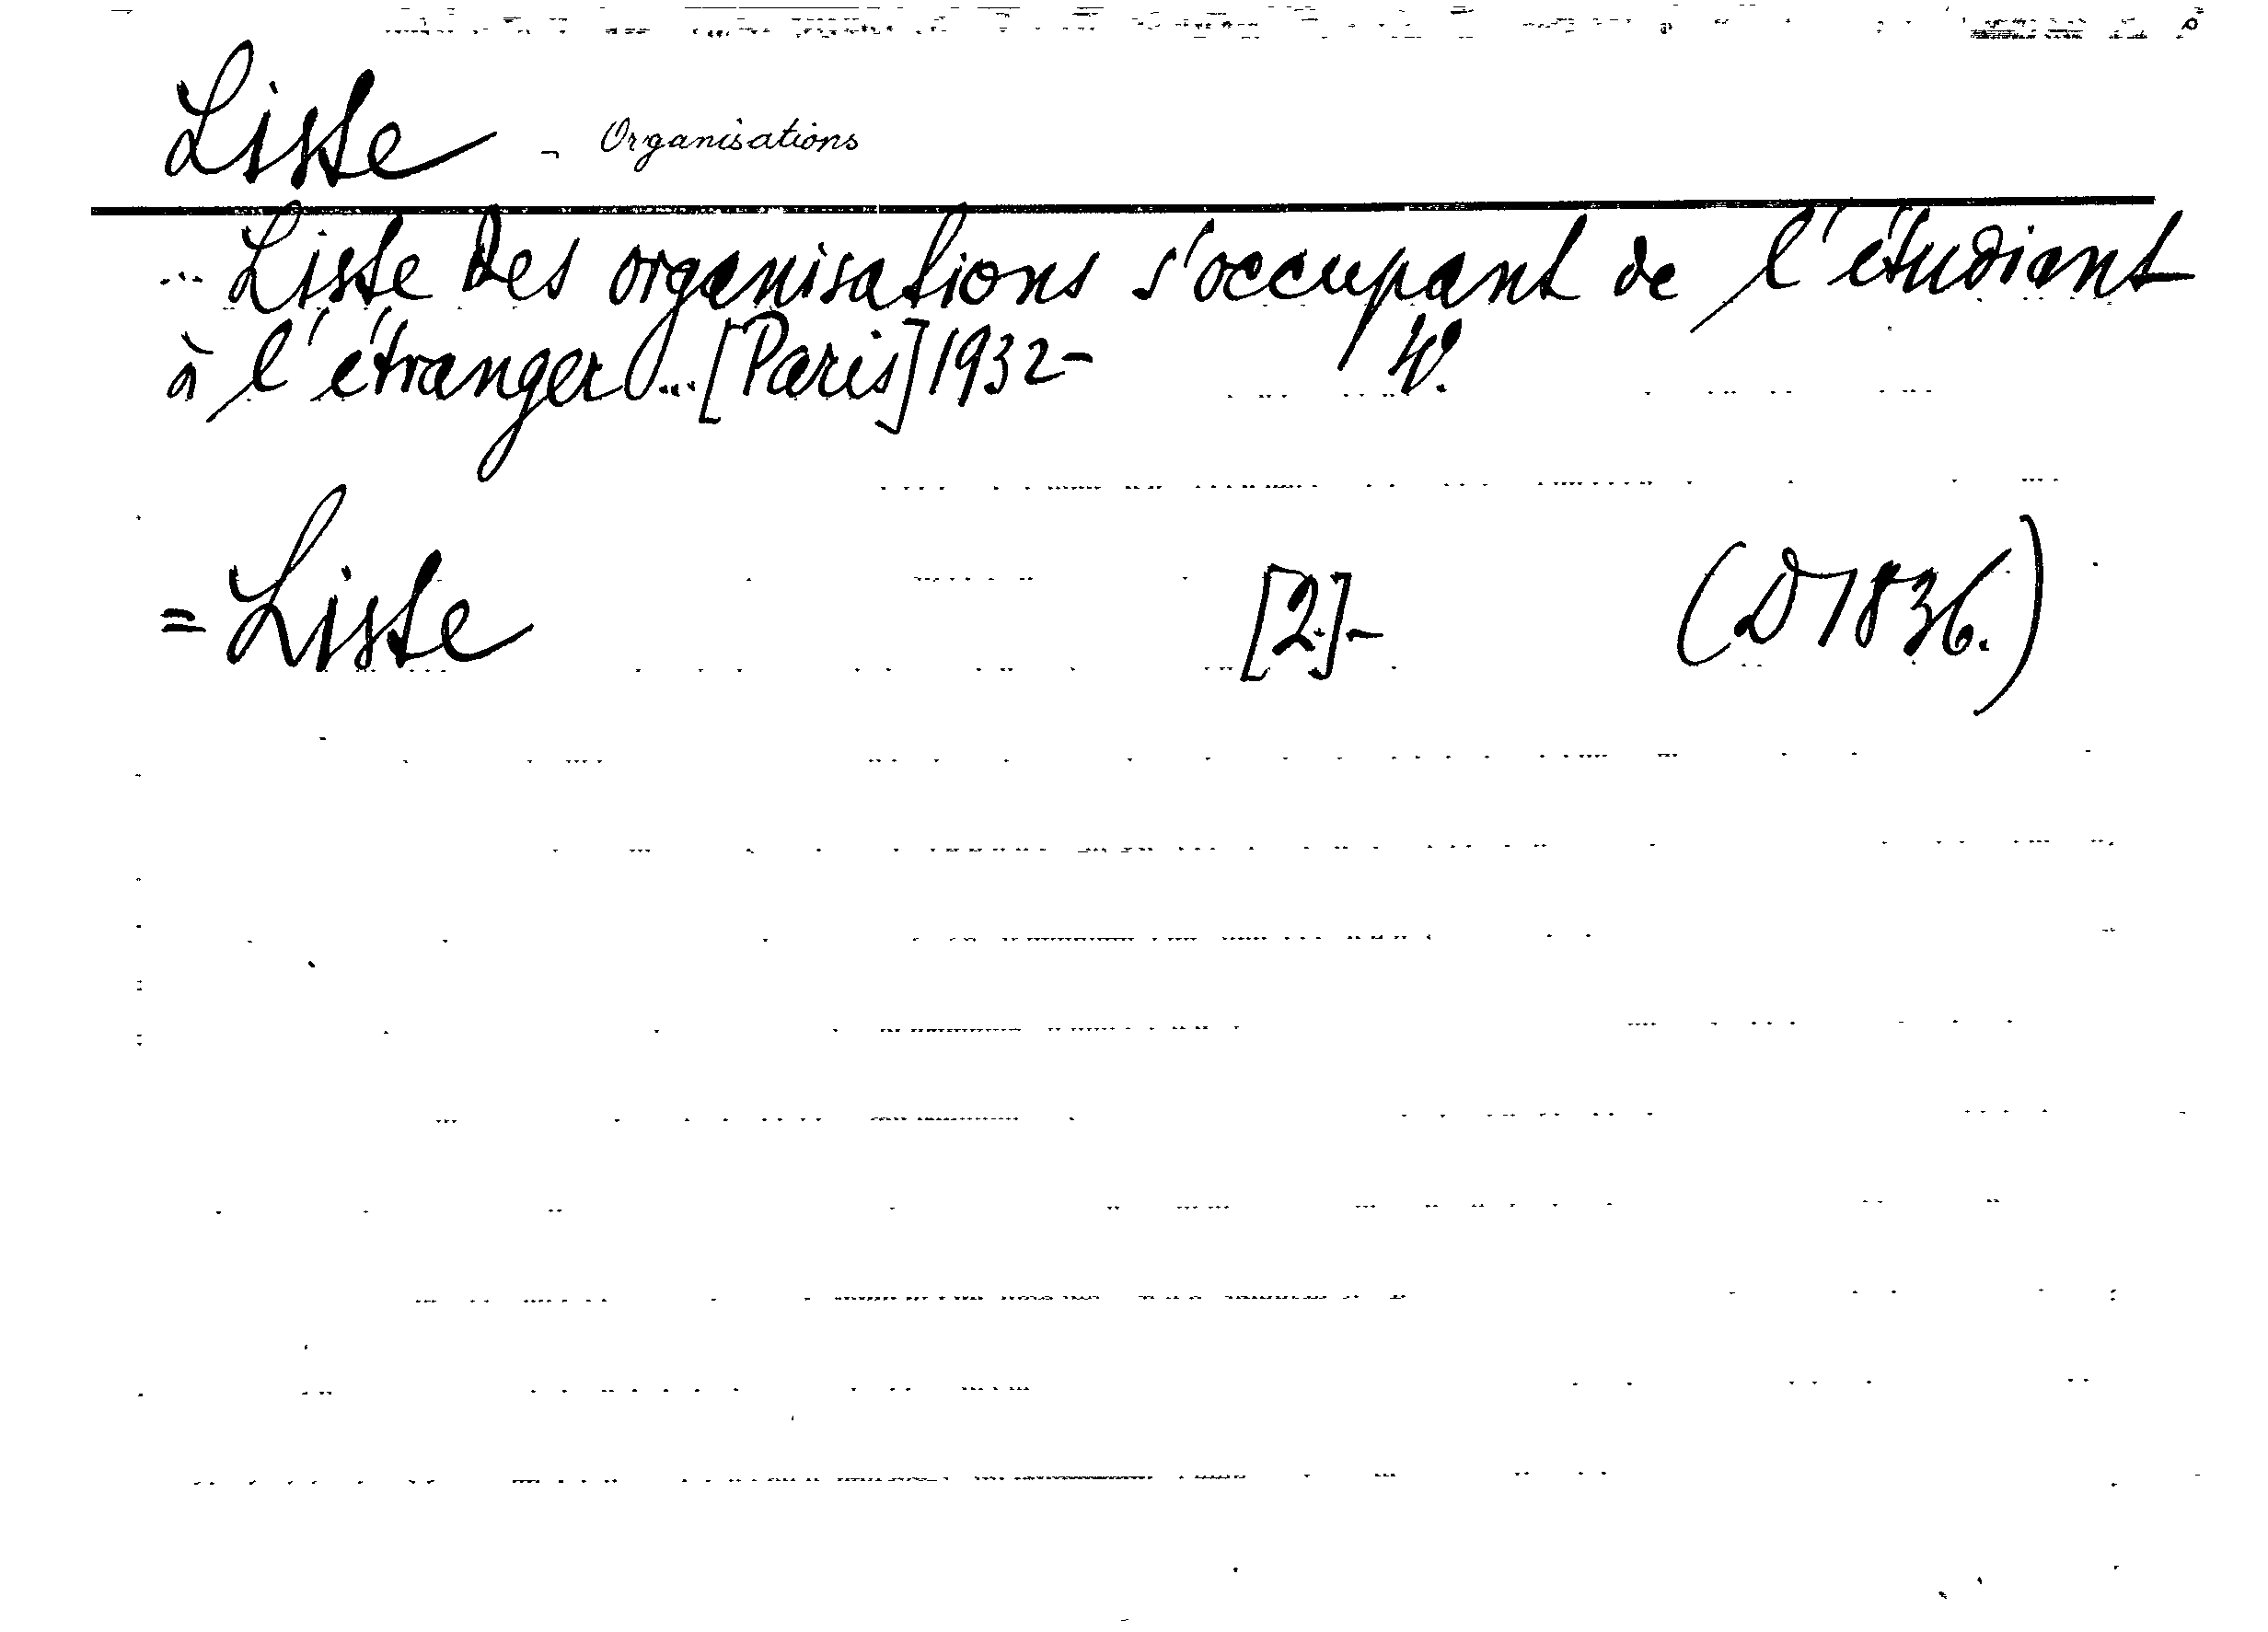 Liste - Organisations
... Liste des organisations s'occupant de l'étudiant
à l'étranger... [Paris] 1932- 4º.
= Liste [2.]- (D 1836.)